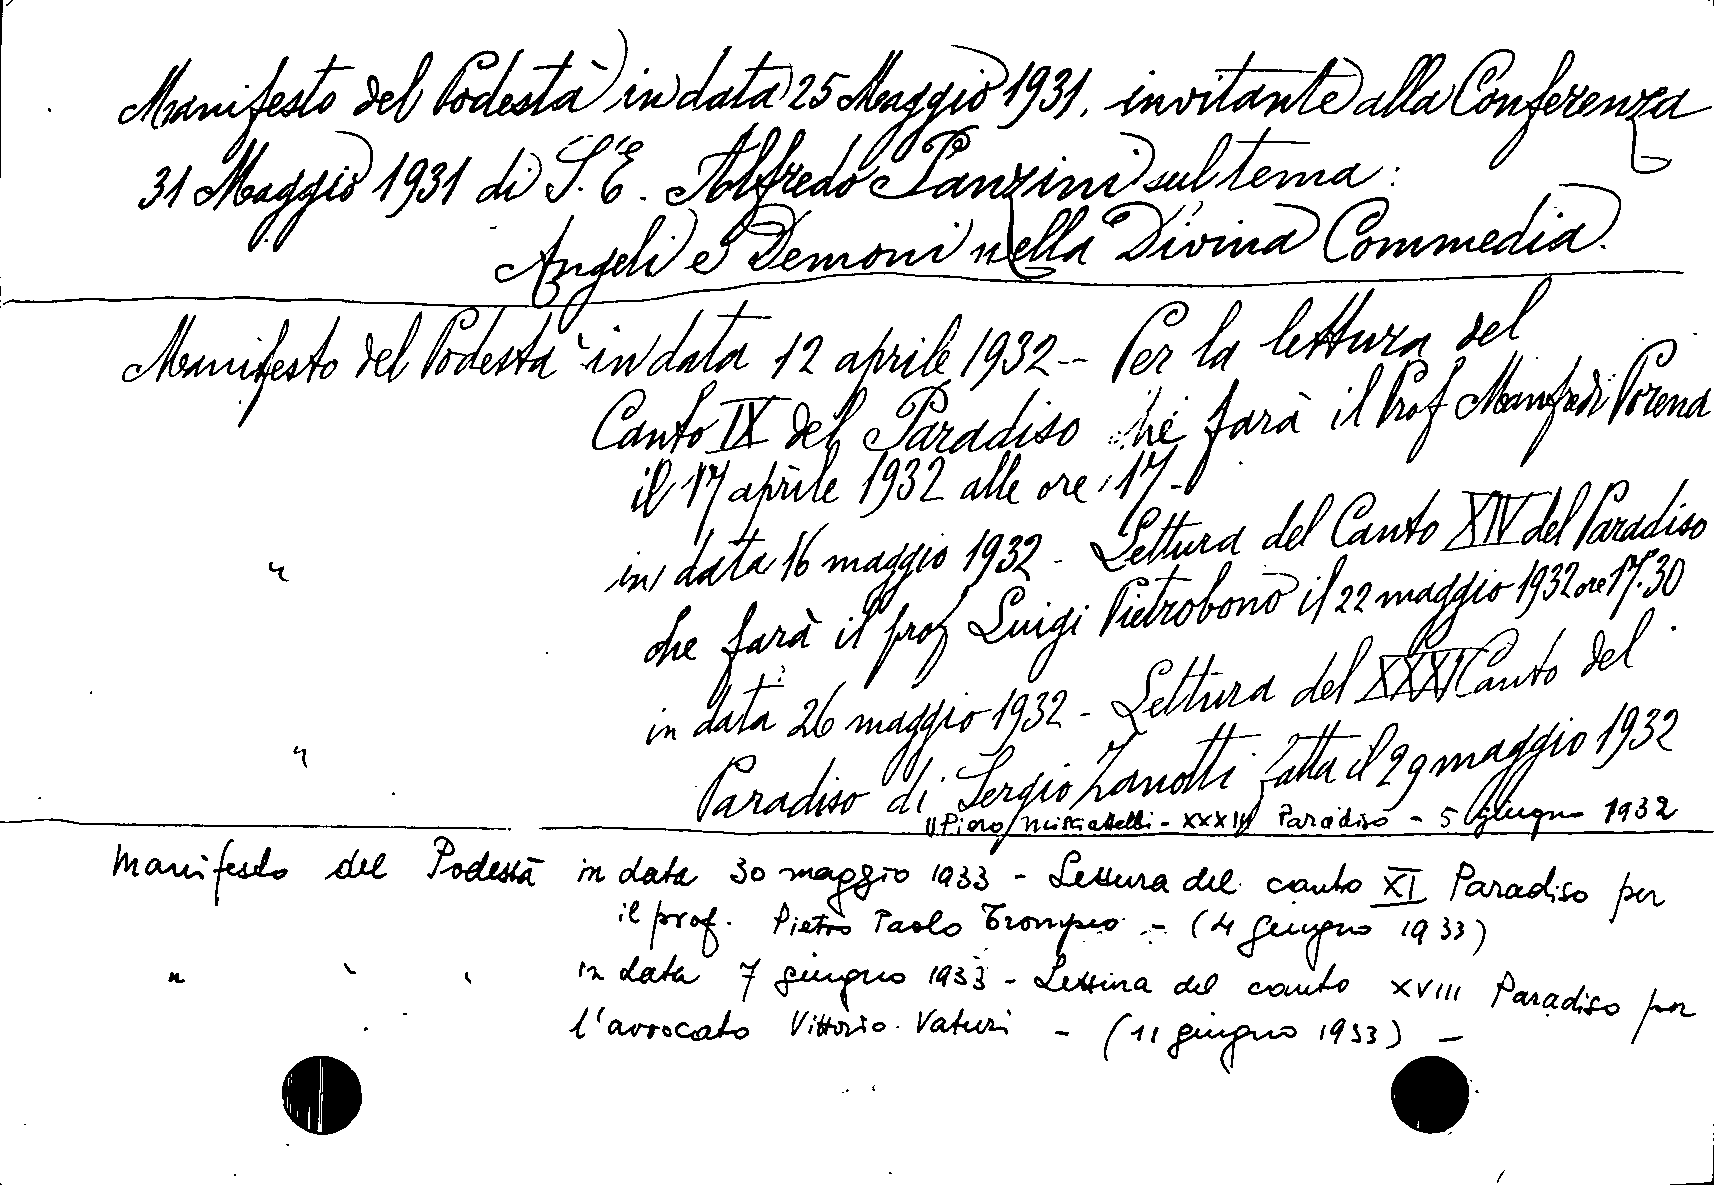 Manifesto del Podestà in data 25 Maggio 1931. invitante alla Conferenza
31 Maggio 1931 di S.E. Alfredo Panzini sul tema:
Angeli e Demoni nella Divina Commedia.
Manifesto del Podestà in data 12 aprile 1932 -- Per la lettura del
Canto IX del Paradiso che farà il Prof Manfredi Porena
il 17 aprile 1932 alle ore 17 -
" in data 16 maggio 1932 - Lettura del Canto XIV del Paradiso
che farà il prof Luigi Pietrobono il 22 maggio 1932 ore 17.30
" in data 26 maggio 1932 - Lettura del XXXI Canto del
Paradiso di Sergio Zanotti fatta il 29 maggio 1932
" Piero Misciattelli - Paradiso - 5 giugno 1932
Manifesto del Podestà in data 30 maggio 1933 - Lettura del canto XI Paradiso per
il prof. Pietro Paolo Trompeo - (4 giugno 1933)
" " " in data 7 giugno 1933 - Lettura del canto XVIII Paradiso per
l'avvocato Vittorio Vaturi - (11 giugno 1933) -